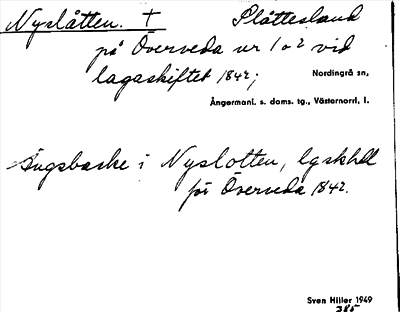 Nyslåtten. † Slåttesland
på Överveda nr 1 o 2 vid
lagaskiftet 1842;
Nordingrå sn,
Ångermanl. s. doms. tg., Västernorrl. l.
Ängsbacke i Nyslotten, lgskhdl
för Överveda 1842.
Sven Hiller 1949
285